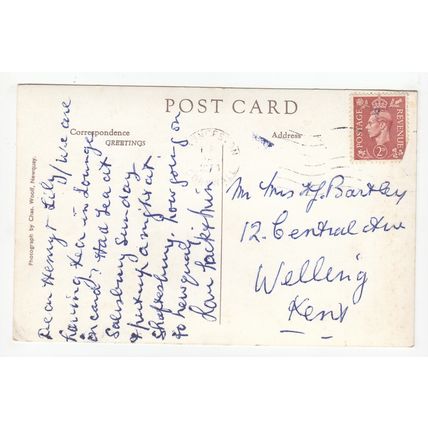 POST CARD
Correspondence
GREETINGS
Address
Photograph by Chas. Woolf, Newquay.
Dear Henry & Lily, We are
having tea in Lounge
on card. Had tea at
Salisbury Sunday
& putup a night at
Shaftesbury. Now going on
to Newquay.
Love Jack &
Mr Mrs H J. Bartley
12. Central Ave
Welling
Kent
POSTAGE
REVENUE
2D